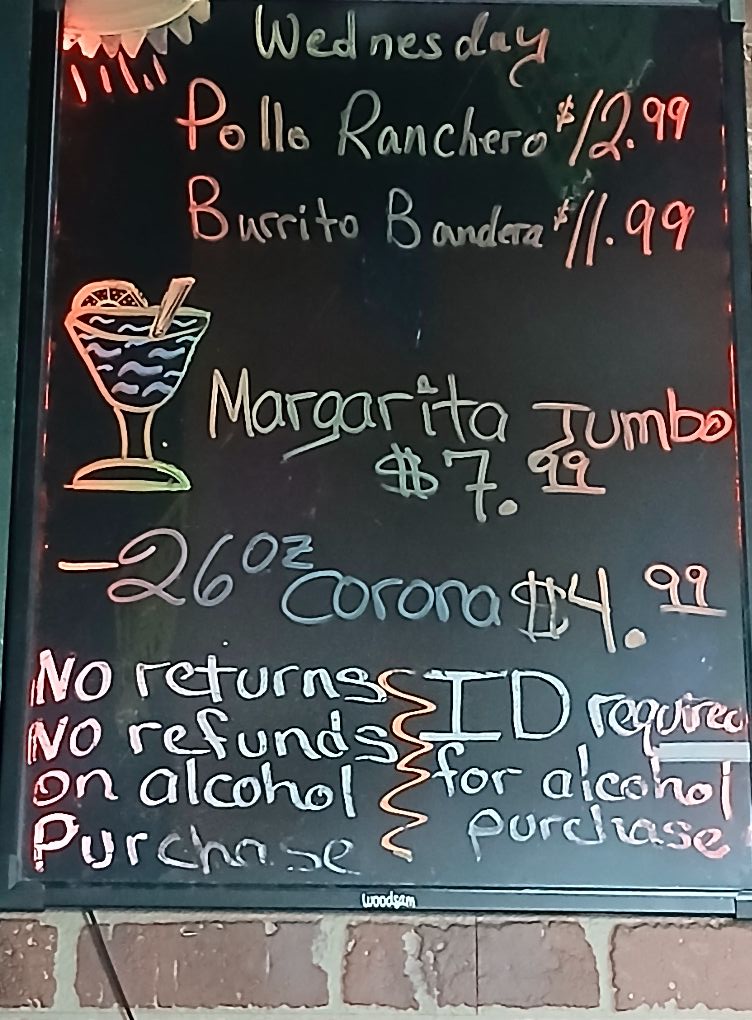 Wednesday
Pollo Ranchero $12.99
Burrito Bandera $11.99
Margarita Jumbo
$7.99
-26oz corona $4.99
No returns
No refunds
on alcohol
Purchase
ID required
for alcohol
purchase
woodsam